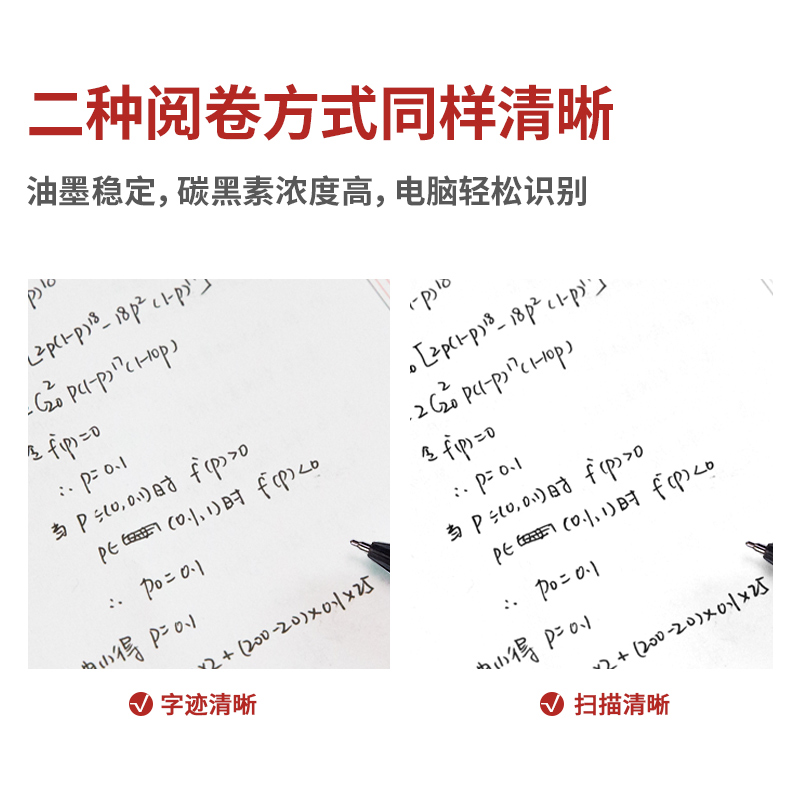 二种阅卷方式同样清晰
油墨稳定，碳黑素浓度高，电脑轻松识别
-p)¹⁰
[2p(1-p)¹⁸-18p²(1-p)¹⁷]
C²₂₀ p(1-p)¹⁷(1-10p)
令 f'(p)=0
∴ p=0.1
当 p∈(0,0.1)时 f'(p)>0
p∈ (0.1,1)时 f'(p)<0
∴ p₀=0.1
得 p=0.1
×2+(200-20)×0.1×25
字迹清晰
-p)¹⁰
[2p(1-p)¹⁸-18p²(1-p)¹⁷]
2C²₂₀ p(1-p)¹⁷(1-10p)
令 f'(p)=0
∴ p=0.1
当 p∈(0,0.1)时 f'(p)>0
p∈ (0.1,1)时 f'(p)<0
∴ p₀=0.1
得 p=0.1
×2+(200-20)×0.1×25
扫描清晰